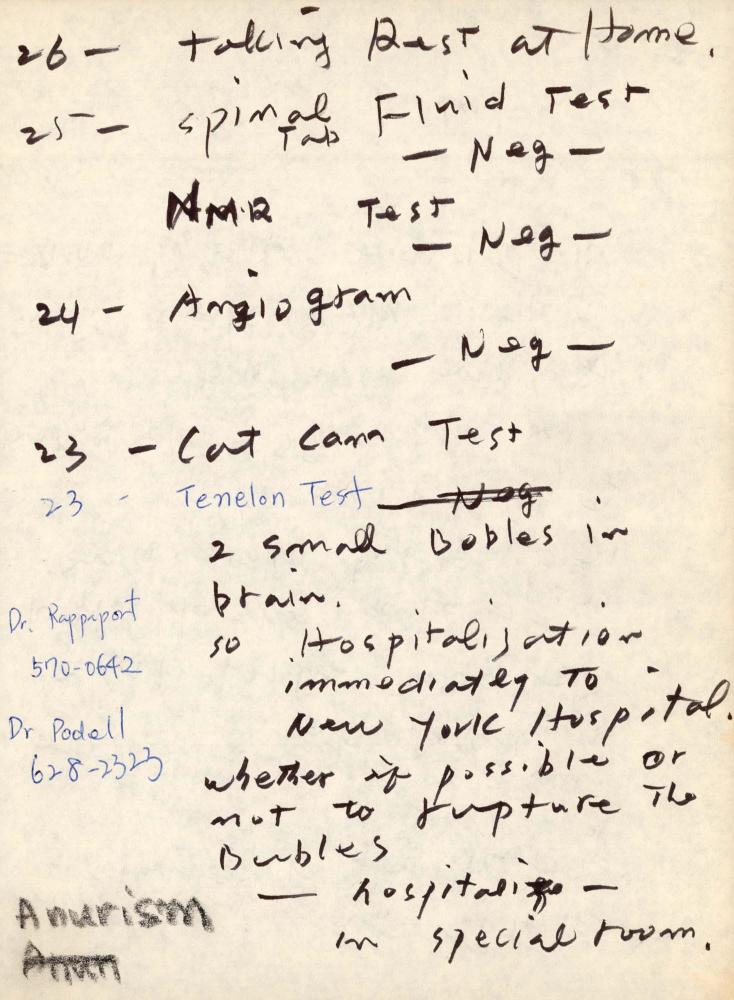 26 - taking Rest at Home.
25 - spinal Fluid Test
Tab
- Neg -
NMR Test
- Neg -
24 - Angiogram
- Neg -
23 - Cat Cann Test
23 - Tenelon Test - Neg
2 small Bobles in
brain.
so Hospitalisation
immediately To
New York Hospital.
whether if possible or
not to rupture The
Bubles
- hospitalize -
in special room.
Dr. Rappaport
570-0642
Dr Podell
628-2323
Anurism
Anun